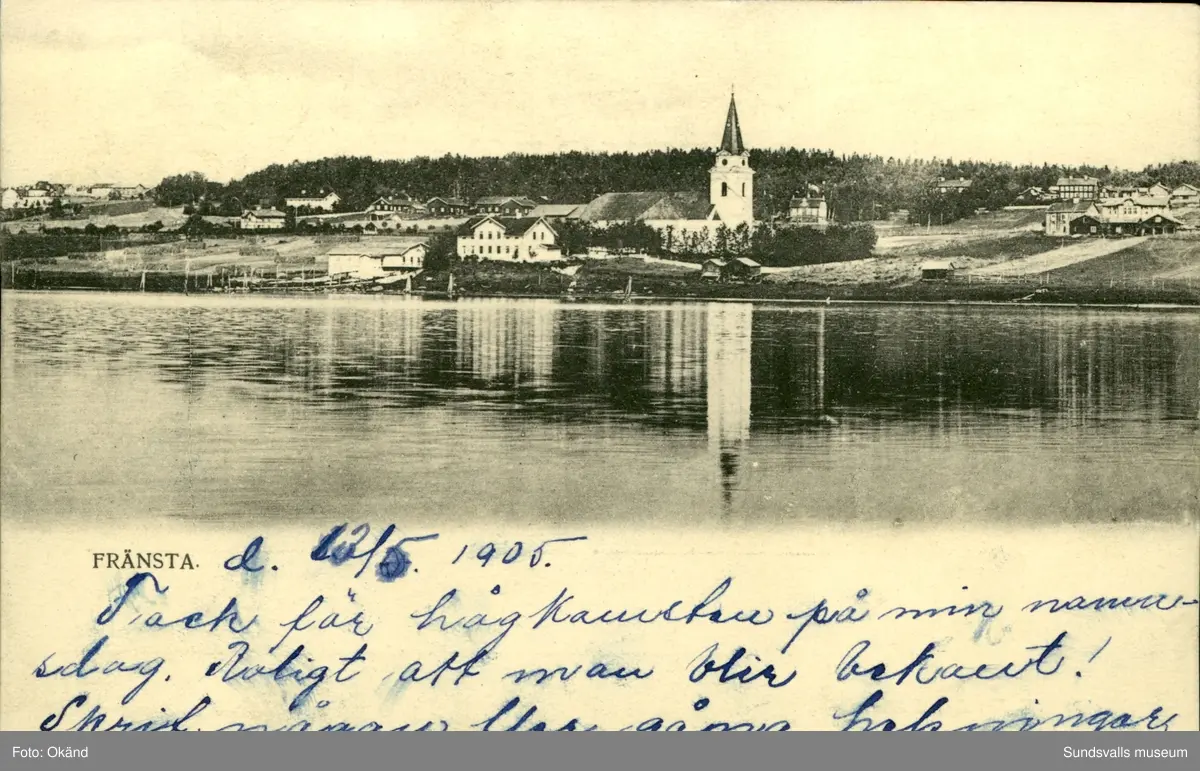 FRÄNSTA. d. 12/5. 1905.
Tack för hågkomsten på min namns-
dag. Roligt att man blir bekant!
Skrif någon
Foto: Okänd
Sundsvalls museum